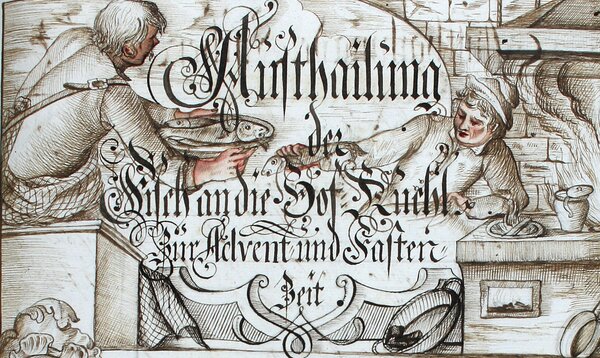 Austhailung
der
Fisch an die Hof-Kuchl
Zür Advent und Fasten-
Zeit